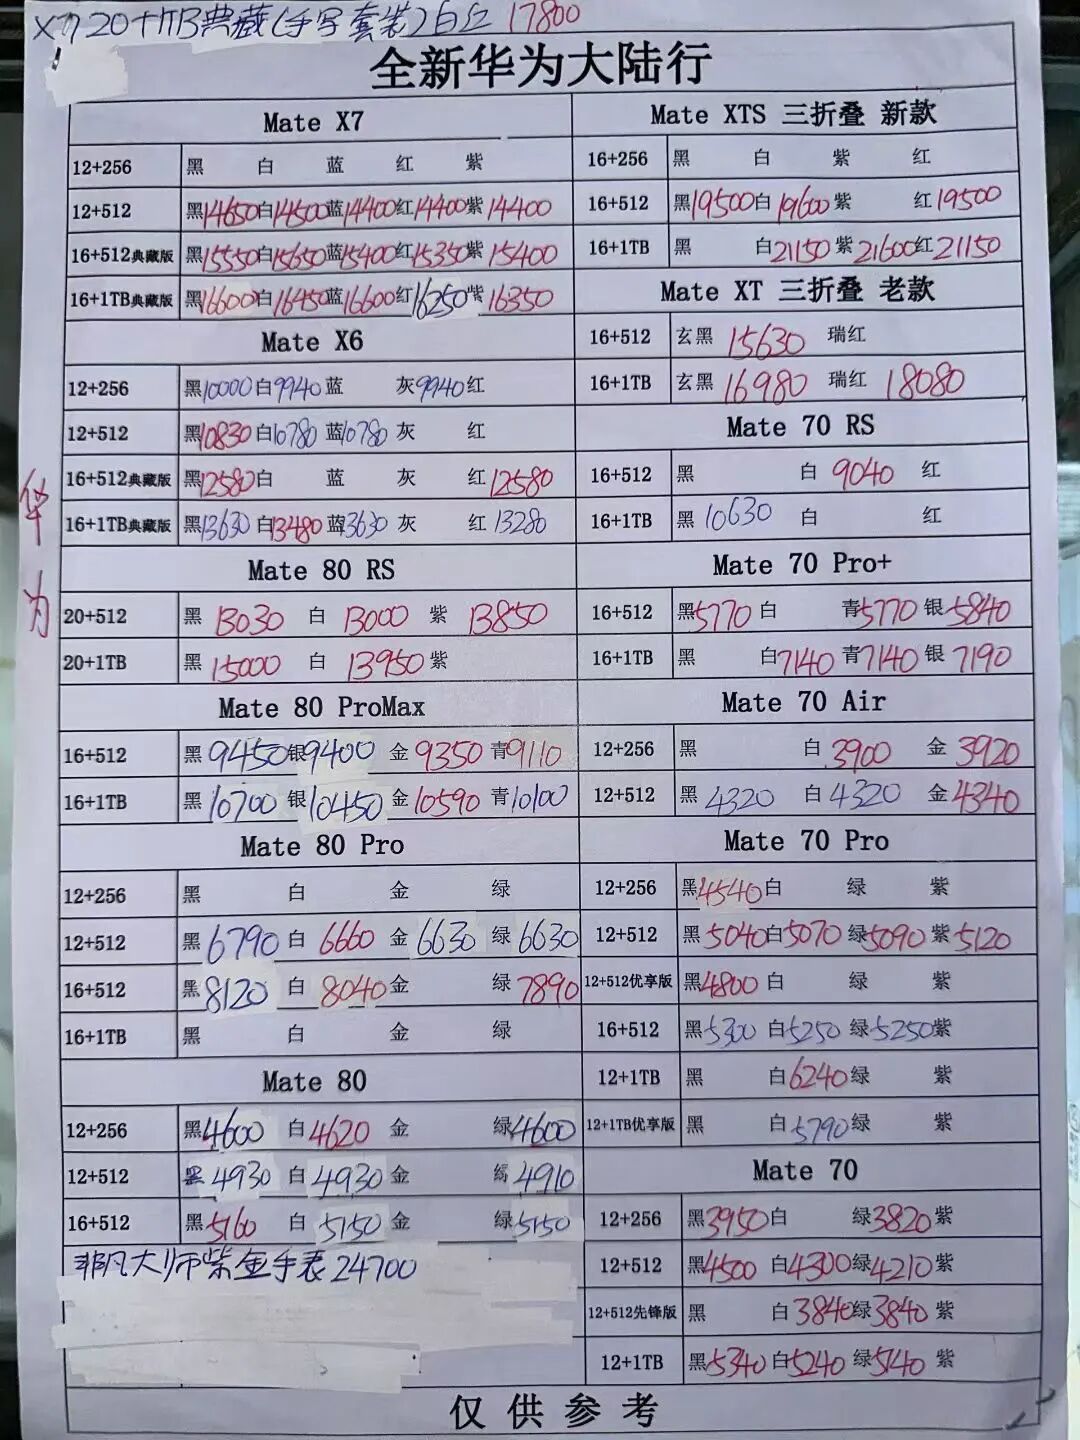 X7 20+1TB典藏(手写套装)白红 17800
全新华为大陆行
华为
Mate X7
12+256 黑 白 蓝 红 紫
12+512 黑14650白14500蓝14400红14400紫14400
16+512典藏版 黑15550白15650蓝15400红15350紫15400
16+1TB典藏版 黑16600白16450蓝16600红16250紫16350
Mate X6
12+256 黑10000白9940蓝 灰9940红
12+512 黑10830白10780蓝10780灰 红
16+512典藏版 黑12580白 蓝 灰 红12580
16+1TB典藏版 黑13630白13480蓝13630灰 红13280
Mate 80 RS
20+512 黑 13030 白 13000 紫 13850
20+1TB 黑 15000 白 13950 紫
Mate 80 ProMax
16+512 黑9450银9400 金9350青9110
16+1TB 黑10700 银10450金10590青10100
Mate 80 Pro
12+256 黑 白 金 绿
12+512 黑6790白 6660 金6630绿6630
16+512 黑8120 白 8040金 绿7890
16+1TB 黑 白 金 绿
Mate 80
12+256 黑4600 白4620 金 绿4600
12+512 黑4930 白4930 金 绿4910
16+512 黑5160 白 5150 金 绿5150
非凡大师紫金手表24700
Mate XTS 三折叠 新款
16+256 黑 白 紫 红
16+512 黑19500白19600紫 红19500
16+1TB 黑 白21150紫21600红21150
Mate XT 三折叠 老款
16+512 玄黑 15630 瑞红
16+1TB 玄黑 16980 瑞红 18080
Mate 70 RS
16+512 黑 白 9040 红
16+1TB 黑 10630 白 红
Mate 70 Pro+
16+512 黑5770白 青5770银5840
16+1TB 黑 白7140青7140银7190
Mate 70 Air
12+256 黑 白3900 金3920
12+512 黑4320 白4320 金4340
Mate 70 Pro
12+256 黑4540白 绿 紫
12+512 黑5040白5070绿5090紫5120
12+512优享版 黑4800白 绿 紫
16+512 黑5300白5250绿5250紫
12+1TB 黑 白6240绿 紫
12+1TB优享版 黑 白5790绿 紫
Mate 70
12+256 黑3950白 绿3820紫
12+512 黑4500白4300绿4210紫
12+512先锋版 黑 白3840绿3840紫
12+1TB 黑5340白5240绿5140紫
仅供参考